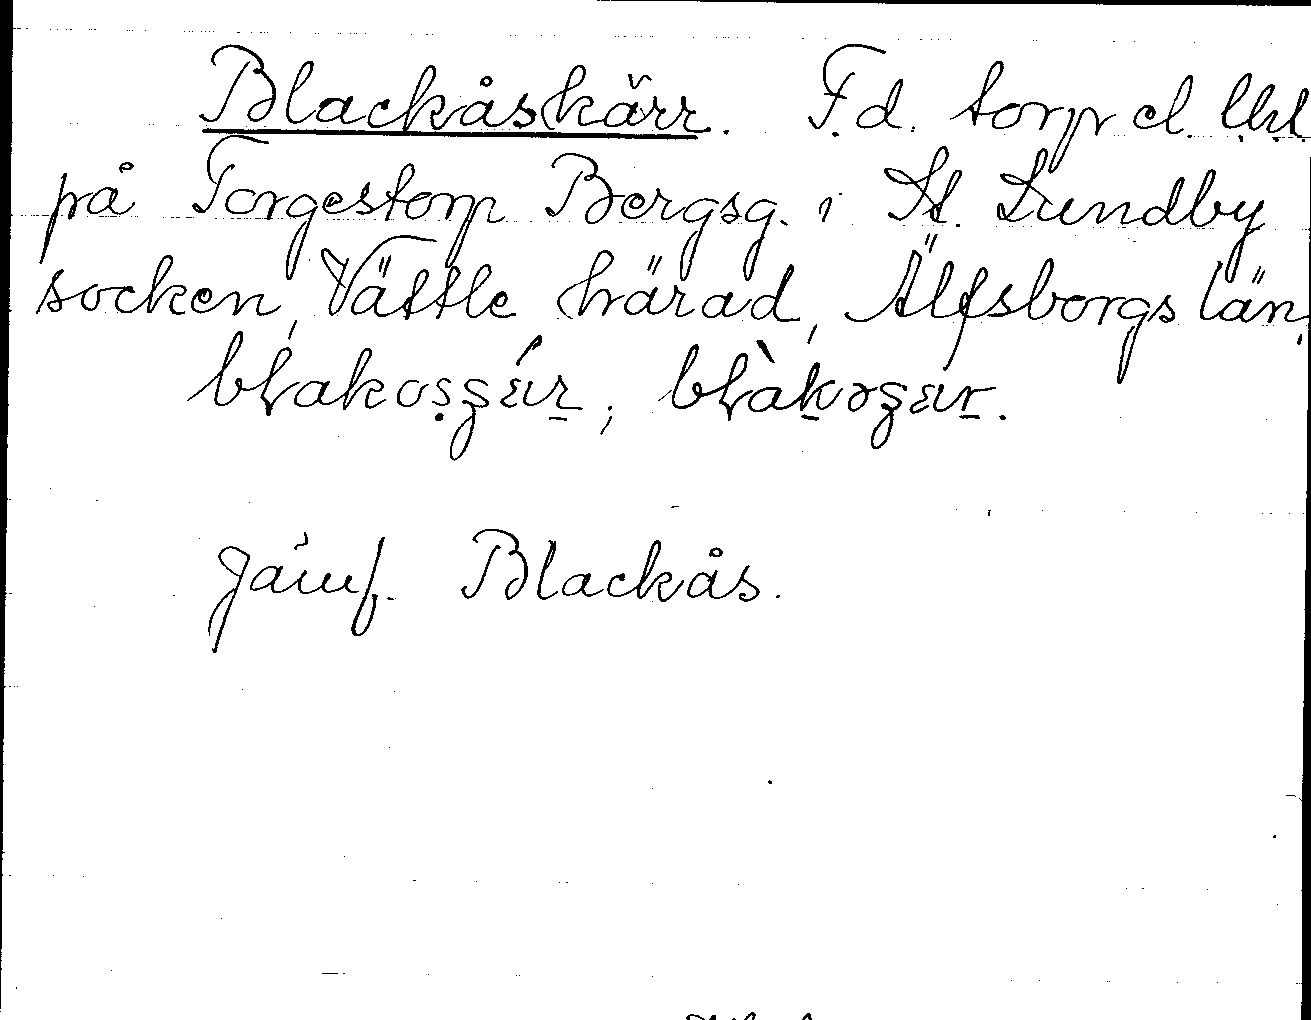 Blackåskärr. F.d. torp el. lht
på Torgestorp Bergsg. i St. Lundby
socken, Vättle härad, Älfsborgs län,
Jämf. Blackås.